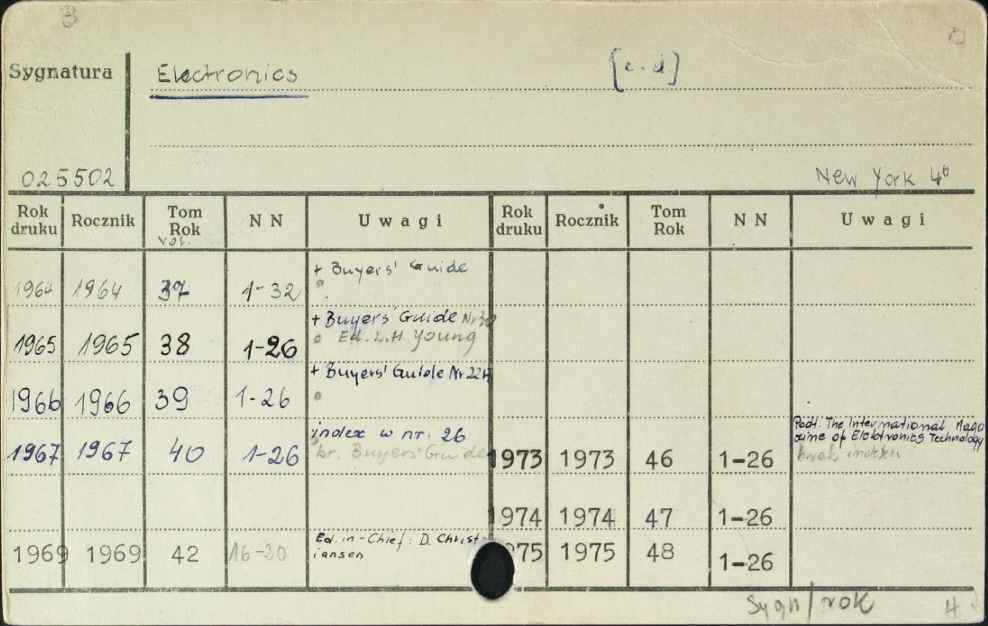 3
Sygnatura Electronics [c.d.]
025502 New York 4°
Rok druku Rocznik Tom Rok vol. NN Uwagi Rok druku Rocznik Tom Rok NN Uwagi
1964 1964 37 1-32 + Buyers' Guide
1965 1965 38 1-26 + Buyers' Guide Nr
Ed. L.H. Young
1966 1966 39 1-26 + Buyers' Guide Nr 22A
1967 1967 40 1-26 index w nr. 26
br. Buyers' Guide
1973 1973 46 1-26 Podt. The International Maga
zine of Electronics Technology
brak indeksu
1974 1974 47 1-26
1969 1969 42 16-20 Ed. in-Chief: D. Christ-
iansen
75 1975 48 1-26
Sygn/rok 4